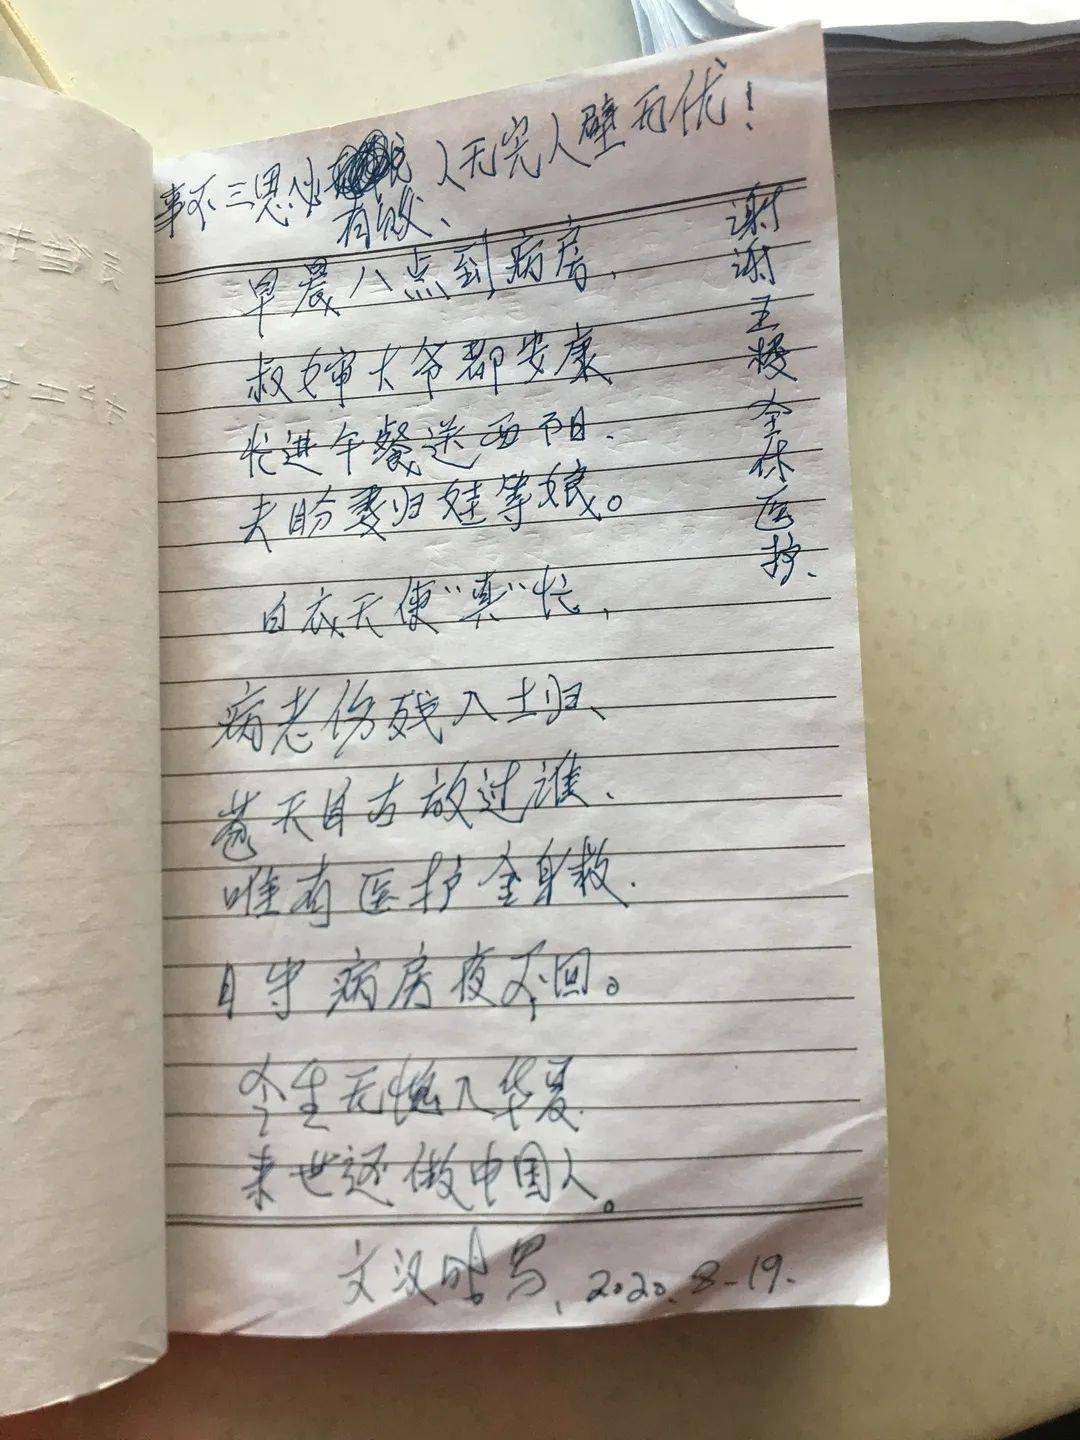 事不三思必有败、人无完人壁无优！
早晨八点到病房、
叔婶大爷都安康
忙进午餐送西阳、
夫盼妻归娃等娘。
白衣天使“真”忙，
病老伤残入土归、
苍天目方放过谁、
唯有医护全身救、
日守病房夜不回。
今生无愧入华夏
来世还做中国人。
文汉 写、2020.8-19.
谢谢王 全体医护、